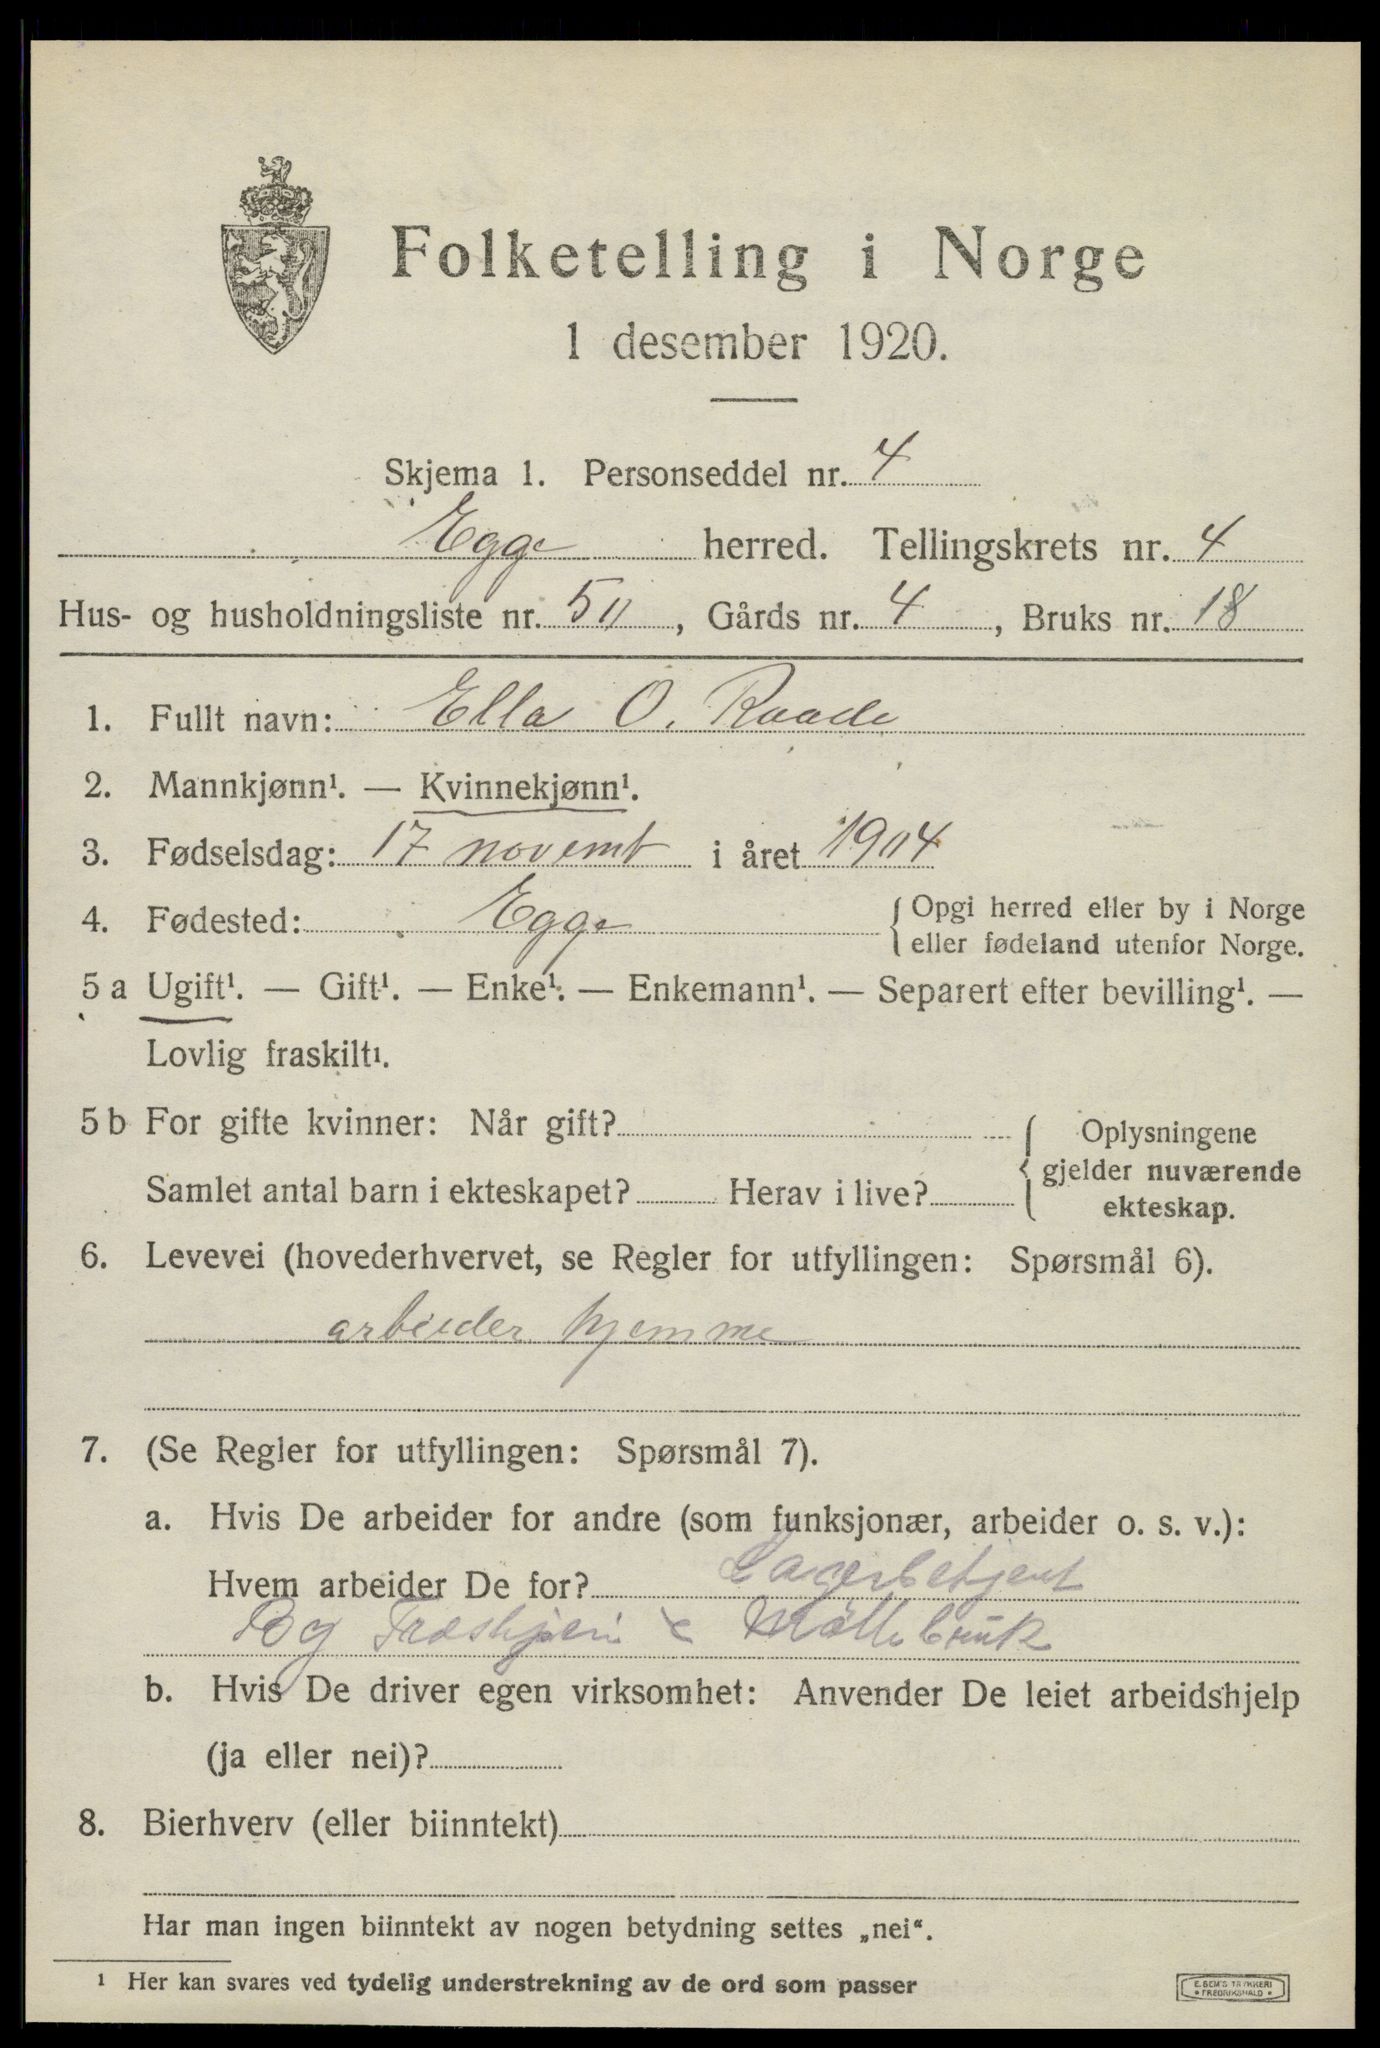 Folketelling i Norge
1 desember 1920.
Skjema 1. Personseddel nr. 4
Egge herred. Tellingskrets nr. 4
Hus- og husholdningsliste nr. 50, Gårds nr. 4, Bruks nr. 18
1. Fullt navn: Ella O. Raade
2. Mannkjønn¹. — Kvinnekjønn¹.
3. Fødselsdag: 17 novemb i året 1904
4. Fødested: Egge { Opgi herred eller by i Norge
eller fødeland utenfor Norge.
5 a Ugift¹. — Gift¹. — Enke¹. — Enkemann¹. — Separert efter bevilling¹. —
Lovlig fraskilt¹.
5 b For gifte kvinner: Når gift? { Oplysningene
gjelder nuværende
Samlet antal barn i ekteskapet? Herav i live? ekteskap.
6. Levevei (hovederhvervet, se Regler for utfyllingen: Spørsmål 6).
arbeider hjemme
7. (Se Regler for utfyllingen: Spørsmål 7).
a. Hvis De arbeider for andre (som funksjonær, arbeider o. s. v.):
Hvem arbeider De for? Lagerbetjent
Møllebruk
b. Hvis De driver egen virksomhet: Anvender De leiet arbeidshjelp
(ja eller nei)?
8. Bierhverv (eller biinntekt)
Har man ingen biinntekt av nogen betydning settes „nei“.
¹ Her kan svares ved tydelig understrekning av de ord som passer
E. SEM'S TRYKKERI
• FREDRIKSHALD •